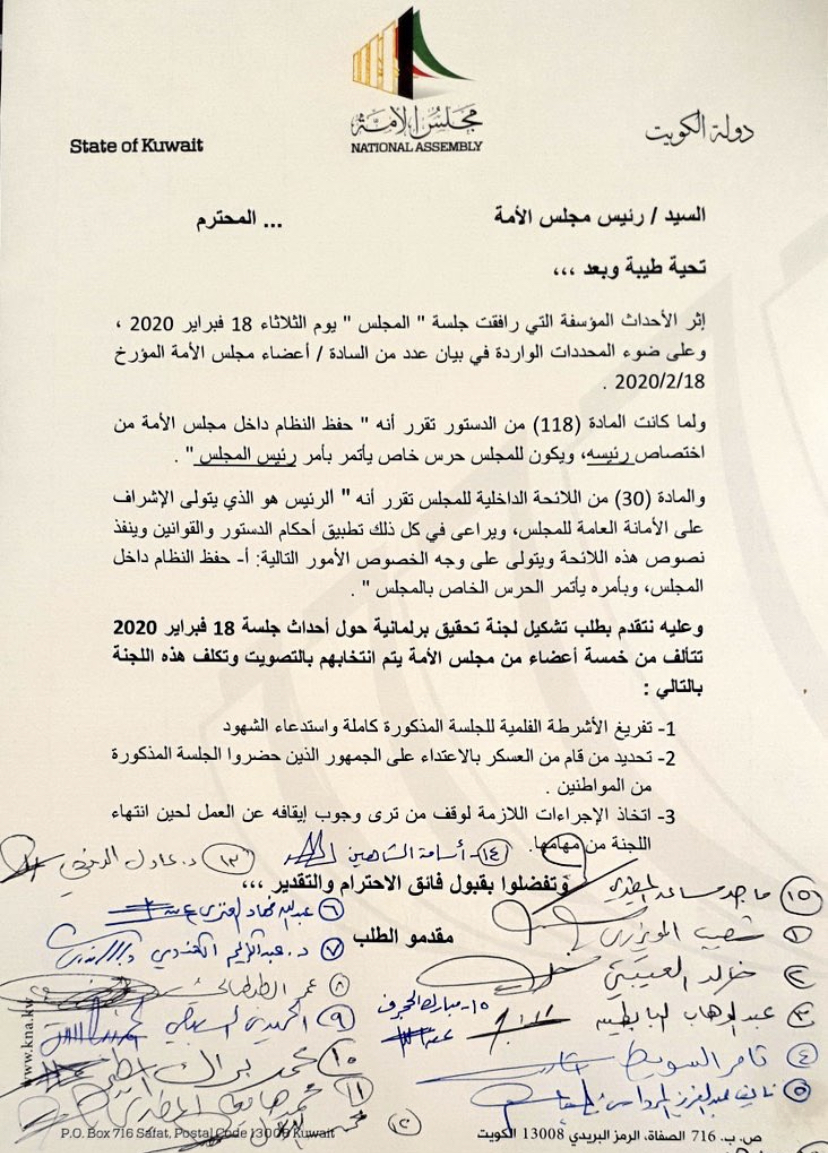 مجلس الأمة
NATIONAL ASSEMBLY
State of Kuwait
دولة الكويت
السيد / رئيس مجلس الأمة ... المحترم
تحية طيبة وبعد ،،،
إثر الأحداث المؤسفة التي رافقت جلسة " المجلس " يوم الثلاثاء 18 فبراير 2020 ،
وعلى ضوء المحددات الواردة في بيان عدد من السادة / أعضاء مجلس الأمة المؤرخ
2020/2/18 .
ولما كانت المادة (118) من الدستور تقرر أنه " حفظ النظام داخل مجلس الأمة من
اختصاص رئيسه، ويكون للمجلس حرس خاص يأتمر بأمر رئيس المجلس " .
والمادة (30) من اللائحة الداخلية للمجلس تقرر أنه " الرئيس هو الذي يتولى الإشراف
على الأمانة العامة للمجلس، ويراعى في كل ذلك تطبيق أحكام الدستور والقوانين وينفذ
نصوص هذه اللائحة ويتولى على وجه الخصوص الأمور التالية: أ- حفظ النظام داخل
المجلس، وبأمره يأتمر الحرس الخاص بالمجلس " .
وعليه نتقدم بطلب تشكيل لجنة تحقيق برلمانية حول أحداث جلسة 18 فبراير 2020
تتألف من خمسة أعضاء من مجلس الأمة يتم انتخابهم بالتصويت وتكلف هذه اللجنة
بالتالي :
1- تفريغ الأشرطة الفلمية للجلسة المذكورة كاملة واستدعاء الشهود
2- تحديد من قام من العسكر بالاعتداء على الجمهور الذين حضروا الجلسة المذكورة
من المواطنين .
3- اتخاذ الإجراءات اللازمة لوقف من ترى وجوب إيقافه عن العمل لحين انتهاء
اللجنة من مهامها.
١٤- أسامة الشاهين
١٣ د. عادل الدمخي
وتفضلوا بقبول فائق الاحترام والتقدير ،،،
١٥ ماجد مساعد المطيري
٦ عبدالله فهاد العنزي
مقدمو الطلب
١ شعيب المويزري
٧ د. عبدالكريم الكندري
٢ خالد العتيبي
٨ عمر الطبطبائي
١٥- مبارك الحجرف
٣ عبدالوهاب البابطين
٩ الحميدي السبيعي
٤ ثامر السويط
١٠ محمد براك المطير
٥ نايف عبدالعزيز المرداس
١١ محمد هايف المطيري
١٢
www.kna.kw
P.O. Box 716 Safat, Postal Code 13008 Kuwait
ص. ب. 716 الصفاة، الرمز البريدي 13008 الكويت